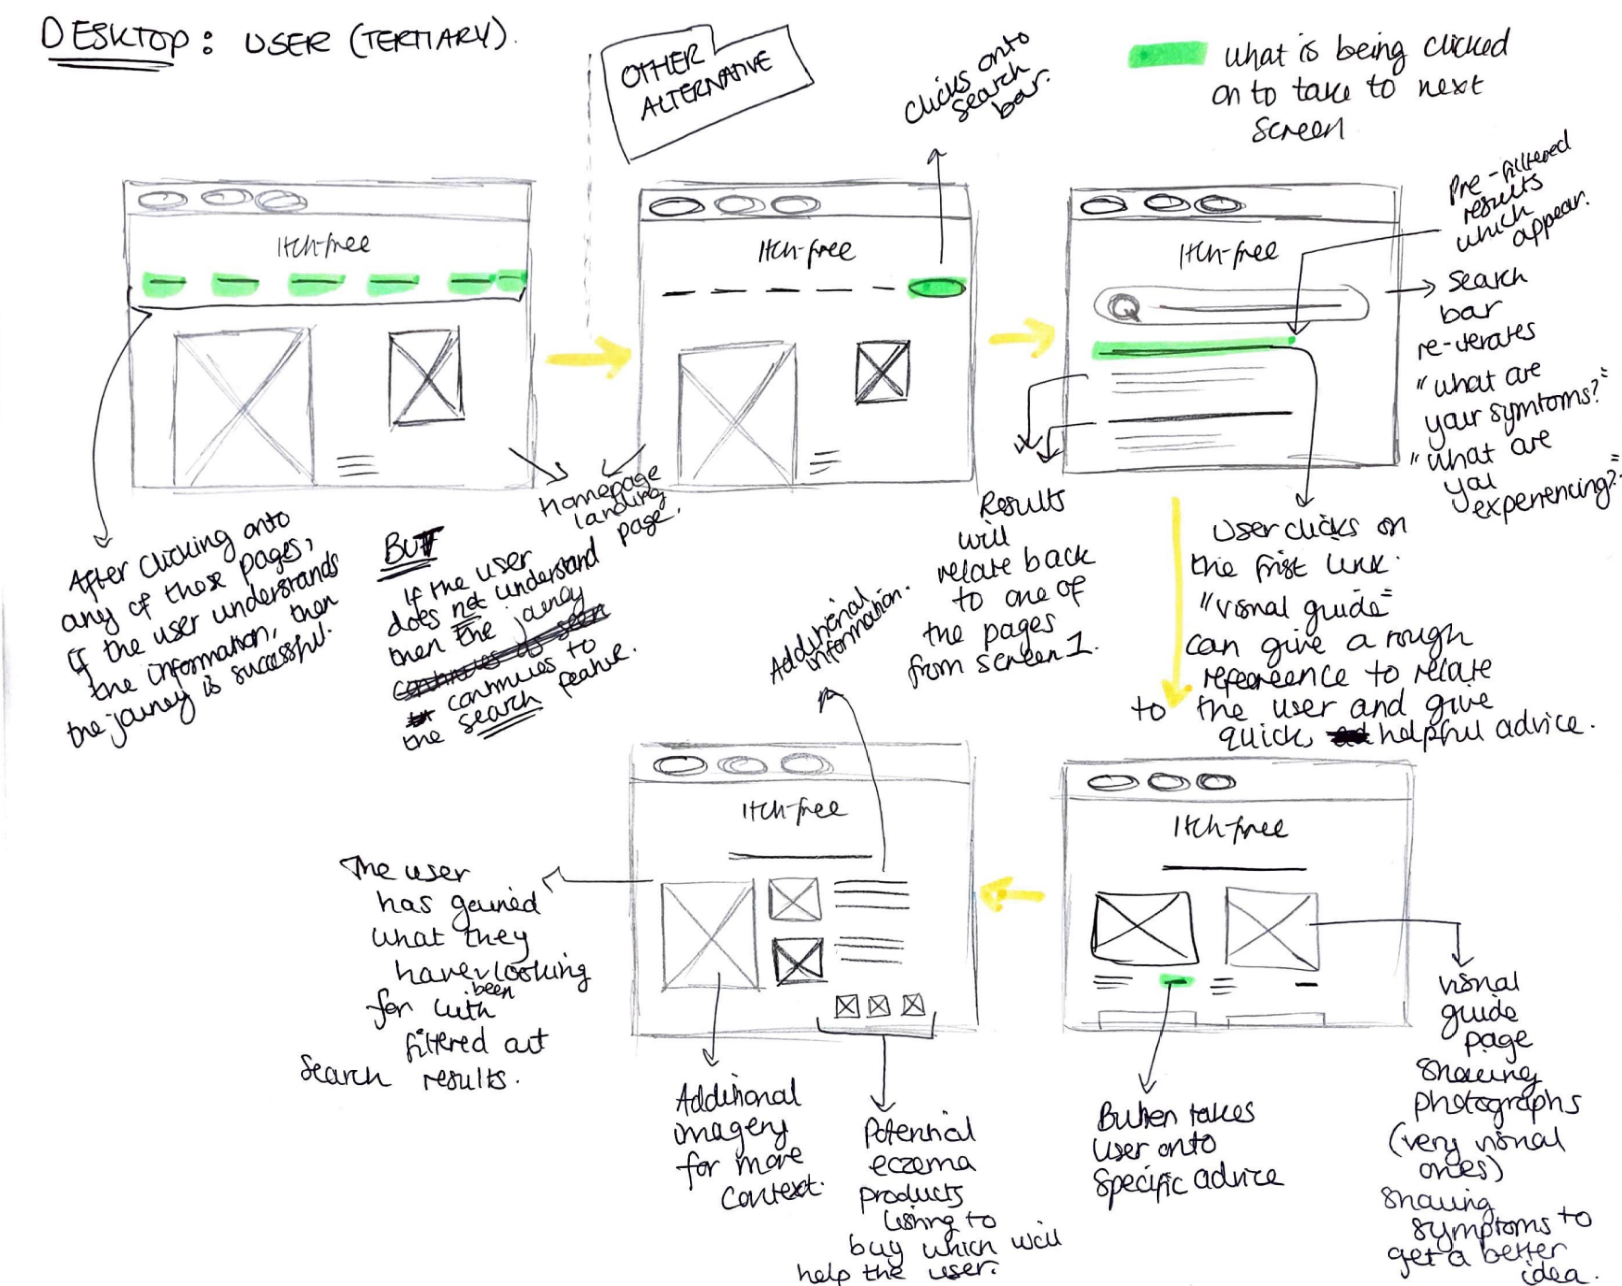 DESKTOP: USER (TERTIARY).
OTHER
ALTERNATIVE
Clicks onto
search
bar.
what is being clicked
on to take to next
screen
Itch-free
After clicking onto
any of those pages,
if the user understands
the information, then
the journey is successful.
BUT
If the user
does not understand
then the journey
continues to
the search feature.
homepage
landing
page.
Itch-free
Itch-free
Pre-filtered
results
which
appear.
search
bar
re-iterates
"what are
your symtoms?"
"what are
you
experiencing?"
Results
will
relate back
to one of
the pages
from screen 1.
User clicks on
the first link.
"visual guide"
can give a rough
refereence to relate
to the user and give
quick, helpful advice.
Itch-free
visual
guide
page
showing
photographs
(very visual
ones)
showing
symptoms to
get a better
idea.
Button takes
user onto
specific advice
Itch-free
Additional
information.
The user
has gained
what they
have been looking
for with
filtered out
search results.
Additional
imagery
for more
context.
Potential
eczema
products
listing to
buy which will
help the user.